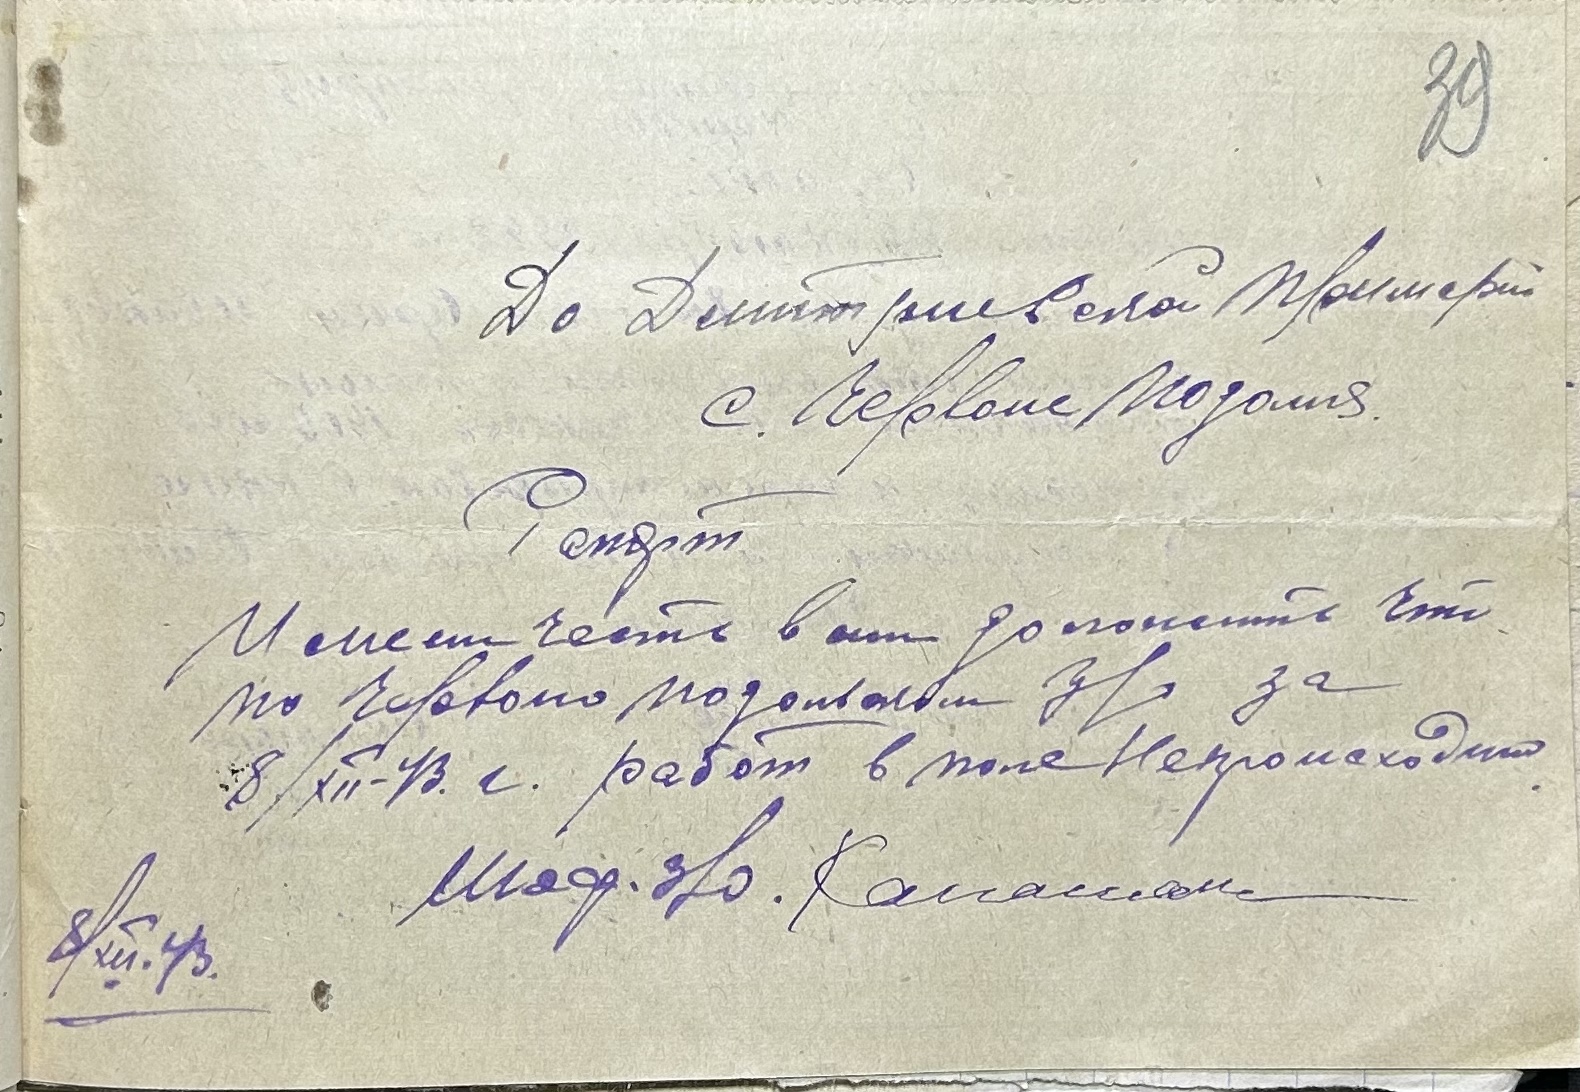 39
До Дмитриевской Примарии
с. Червоне Подолия.
Рапорт
Имееш честь вам доложить что
по Червоно подольском У/р за
8/XII-43. г. работ в поле Непроисходит.
Шеф. з/о.
8/XII.43.